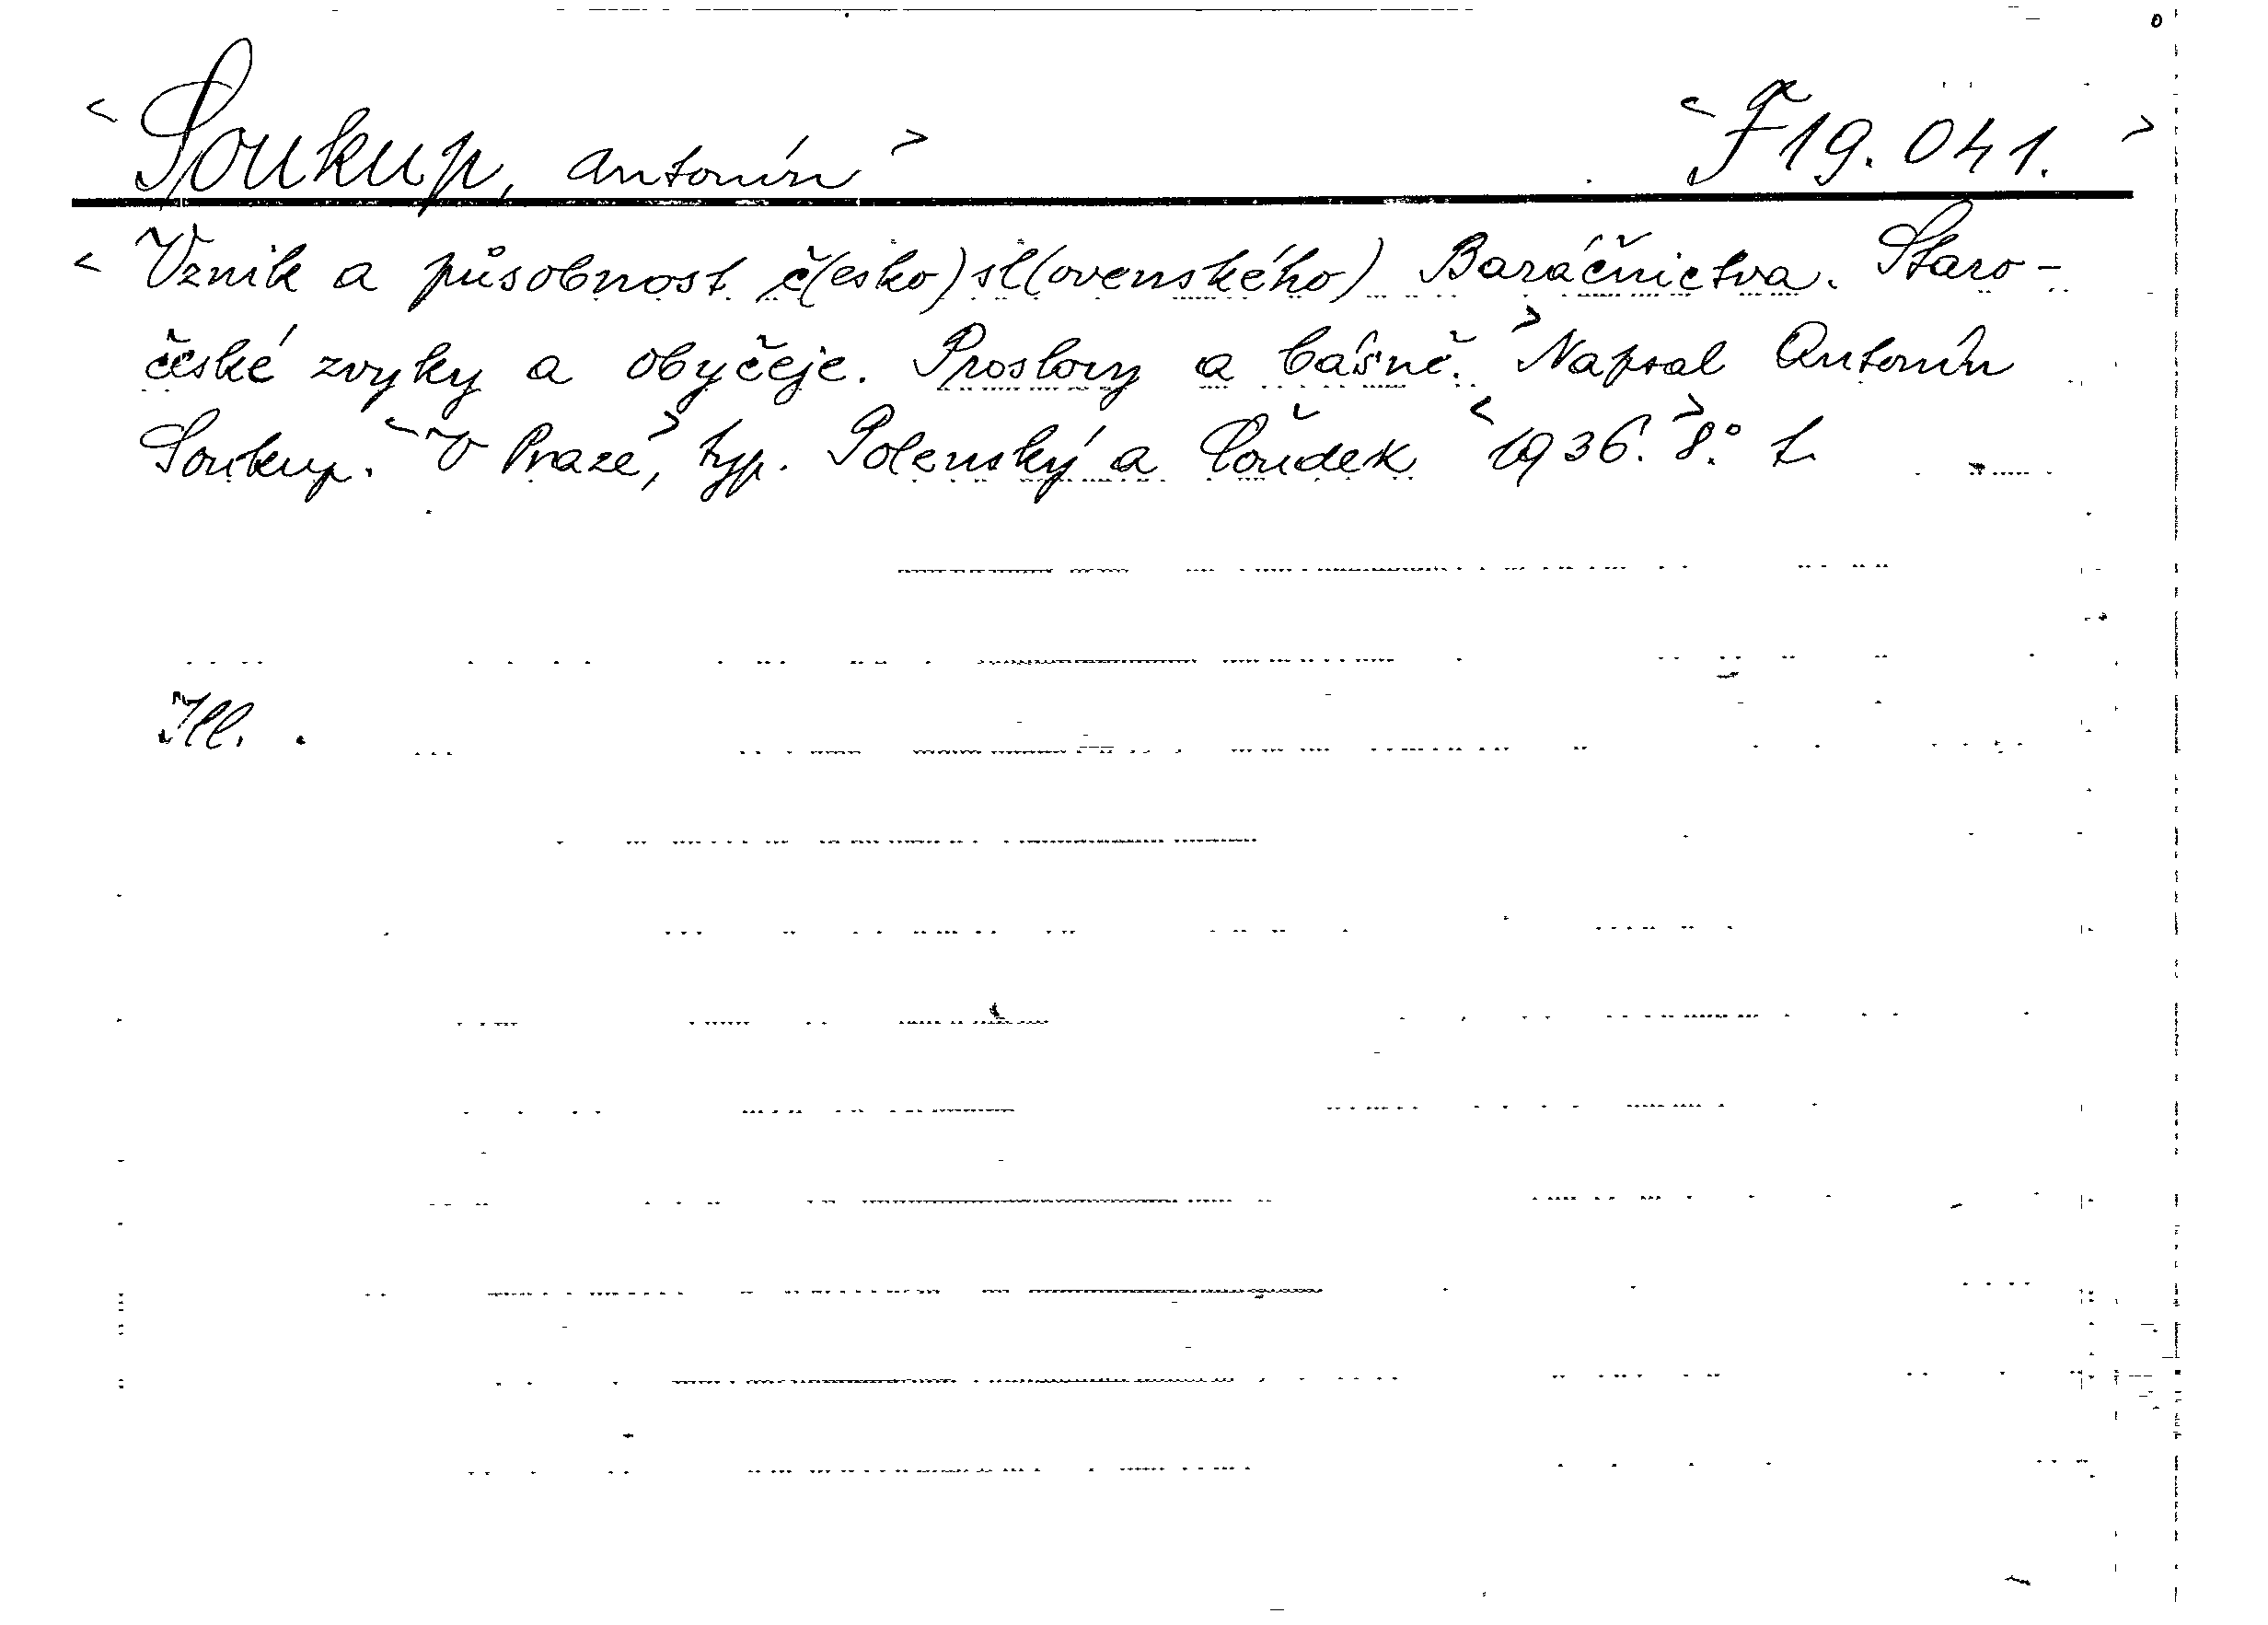 <Soukup, Antonín> <F 19.041.>
<Vznik a působnost č(esko)sl(ovenského) Baráčnictva. Staro-
české zvyky a obyčeje. Proslovy a básně.> Napsal Antonín
Soukup. <V Praze,> typ. Polenský a Couděk <1936.> 8.°
Ill.